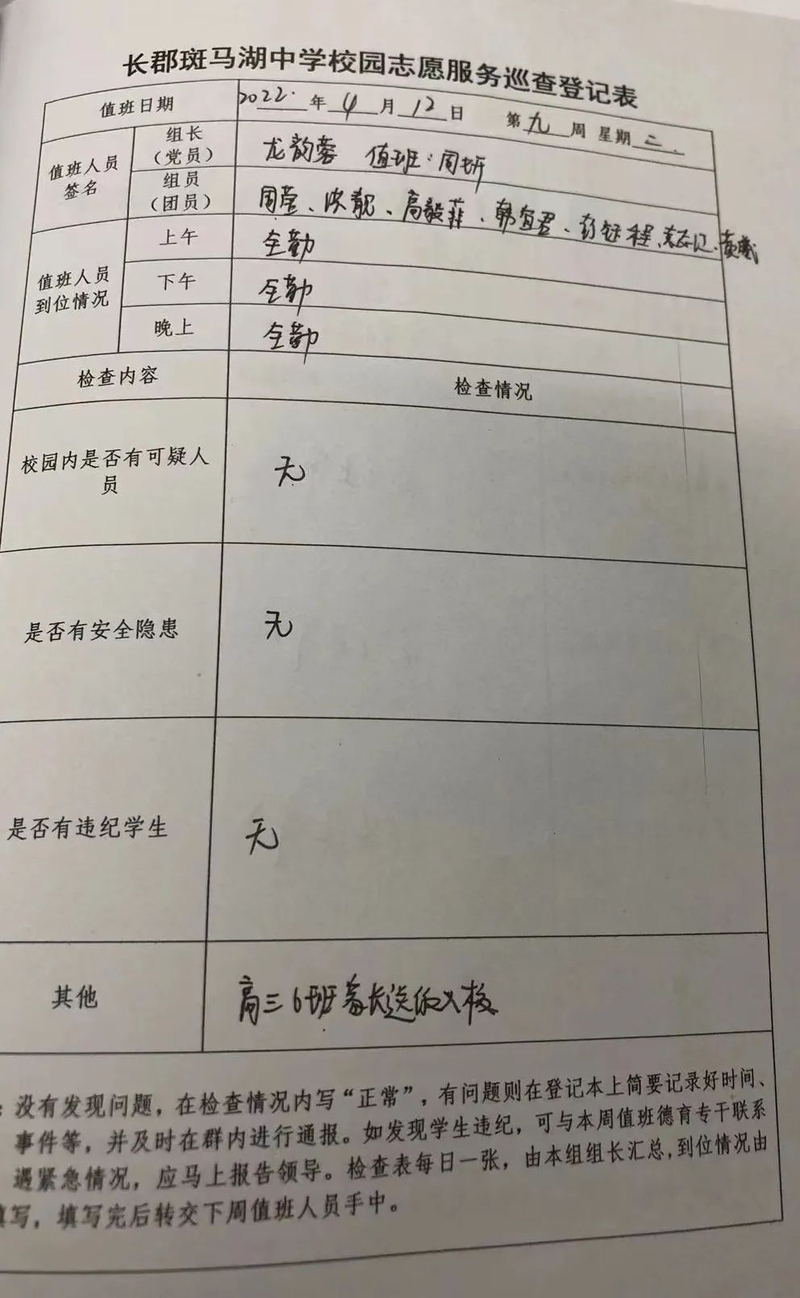 长郡斑马湖中学校园志愿服务巡查登记表
值班日期 2022年4月12日 第九周 星期二
值班人员签名
组长（党员） 龙韵蓉 值班：周妍
组员（团员） 周莹、高毅菲、韩宜君、
值班人员到位情况
上午 全勤
下午 全勤
晚上 全勤
检查内容 检查情况
校园内是否有可疑人员 无
是否有安全隐患 无
是否有违纪学生 无
其他 高三6班家长送饭入校
：没有发现问题，在检查情况内写“正常”，有问题则在登记本上简要记录好时间、
事件等，并及时在群内进行通报。如发现学生违纪，可与本周值班德育专干联系
遇紧急情况，应马上报告领导。检查表每日一张，由本组组长汇总，到位情况由
填写，填写完后转交下周值班人员手中。